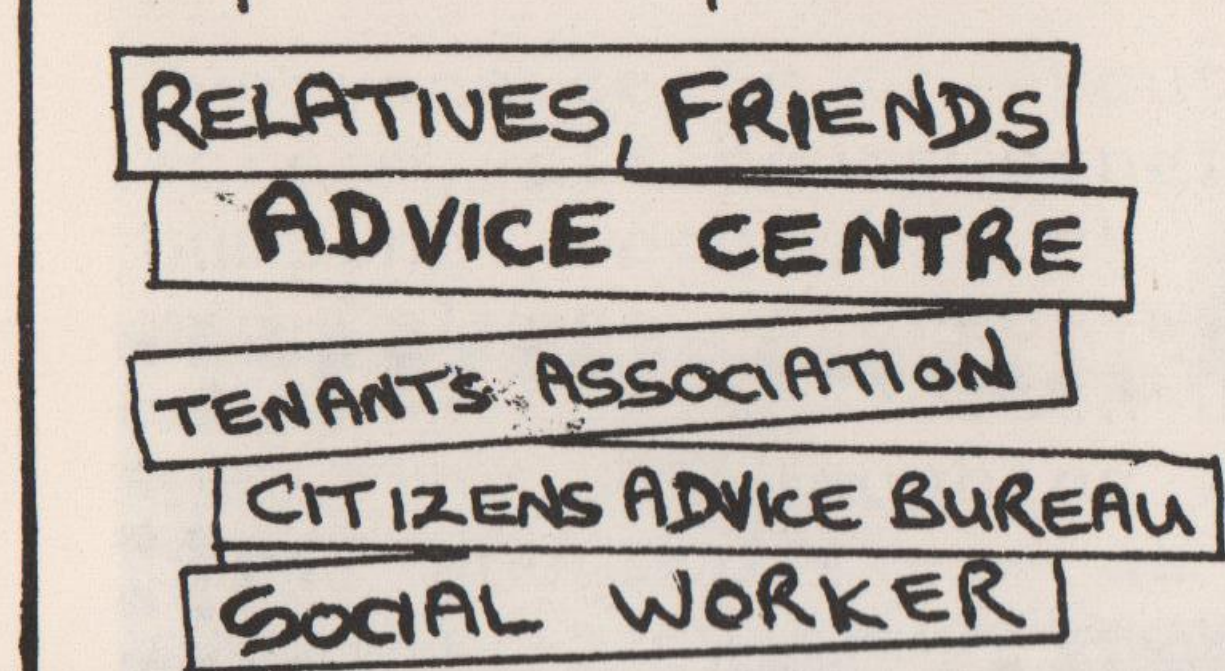 RELATIVES, FRIENDS
ADVICE CENTRE
TENANTS ASSOCIATION
CITIZENS ADVICE BUREAU
SOCIAL WORKER